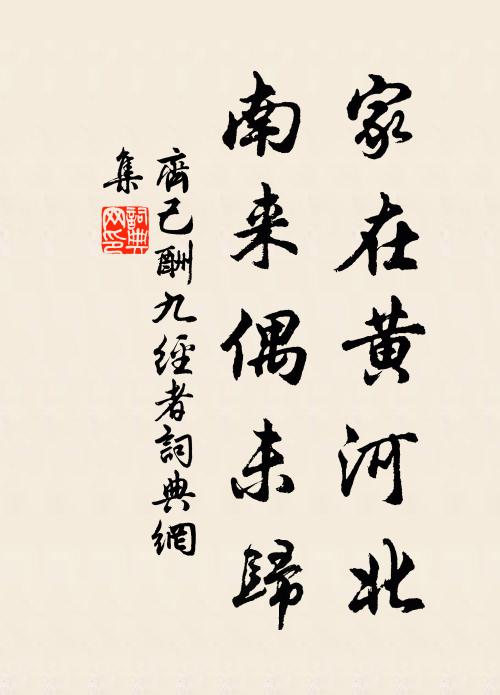 家在黄河北
南来偶未歸
齊己酬九經者詞典網
集
詞典
网印